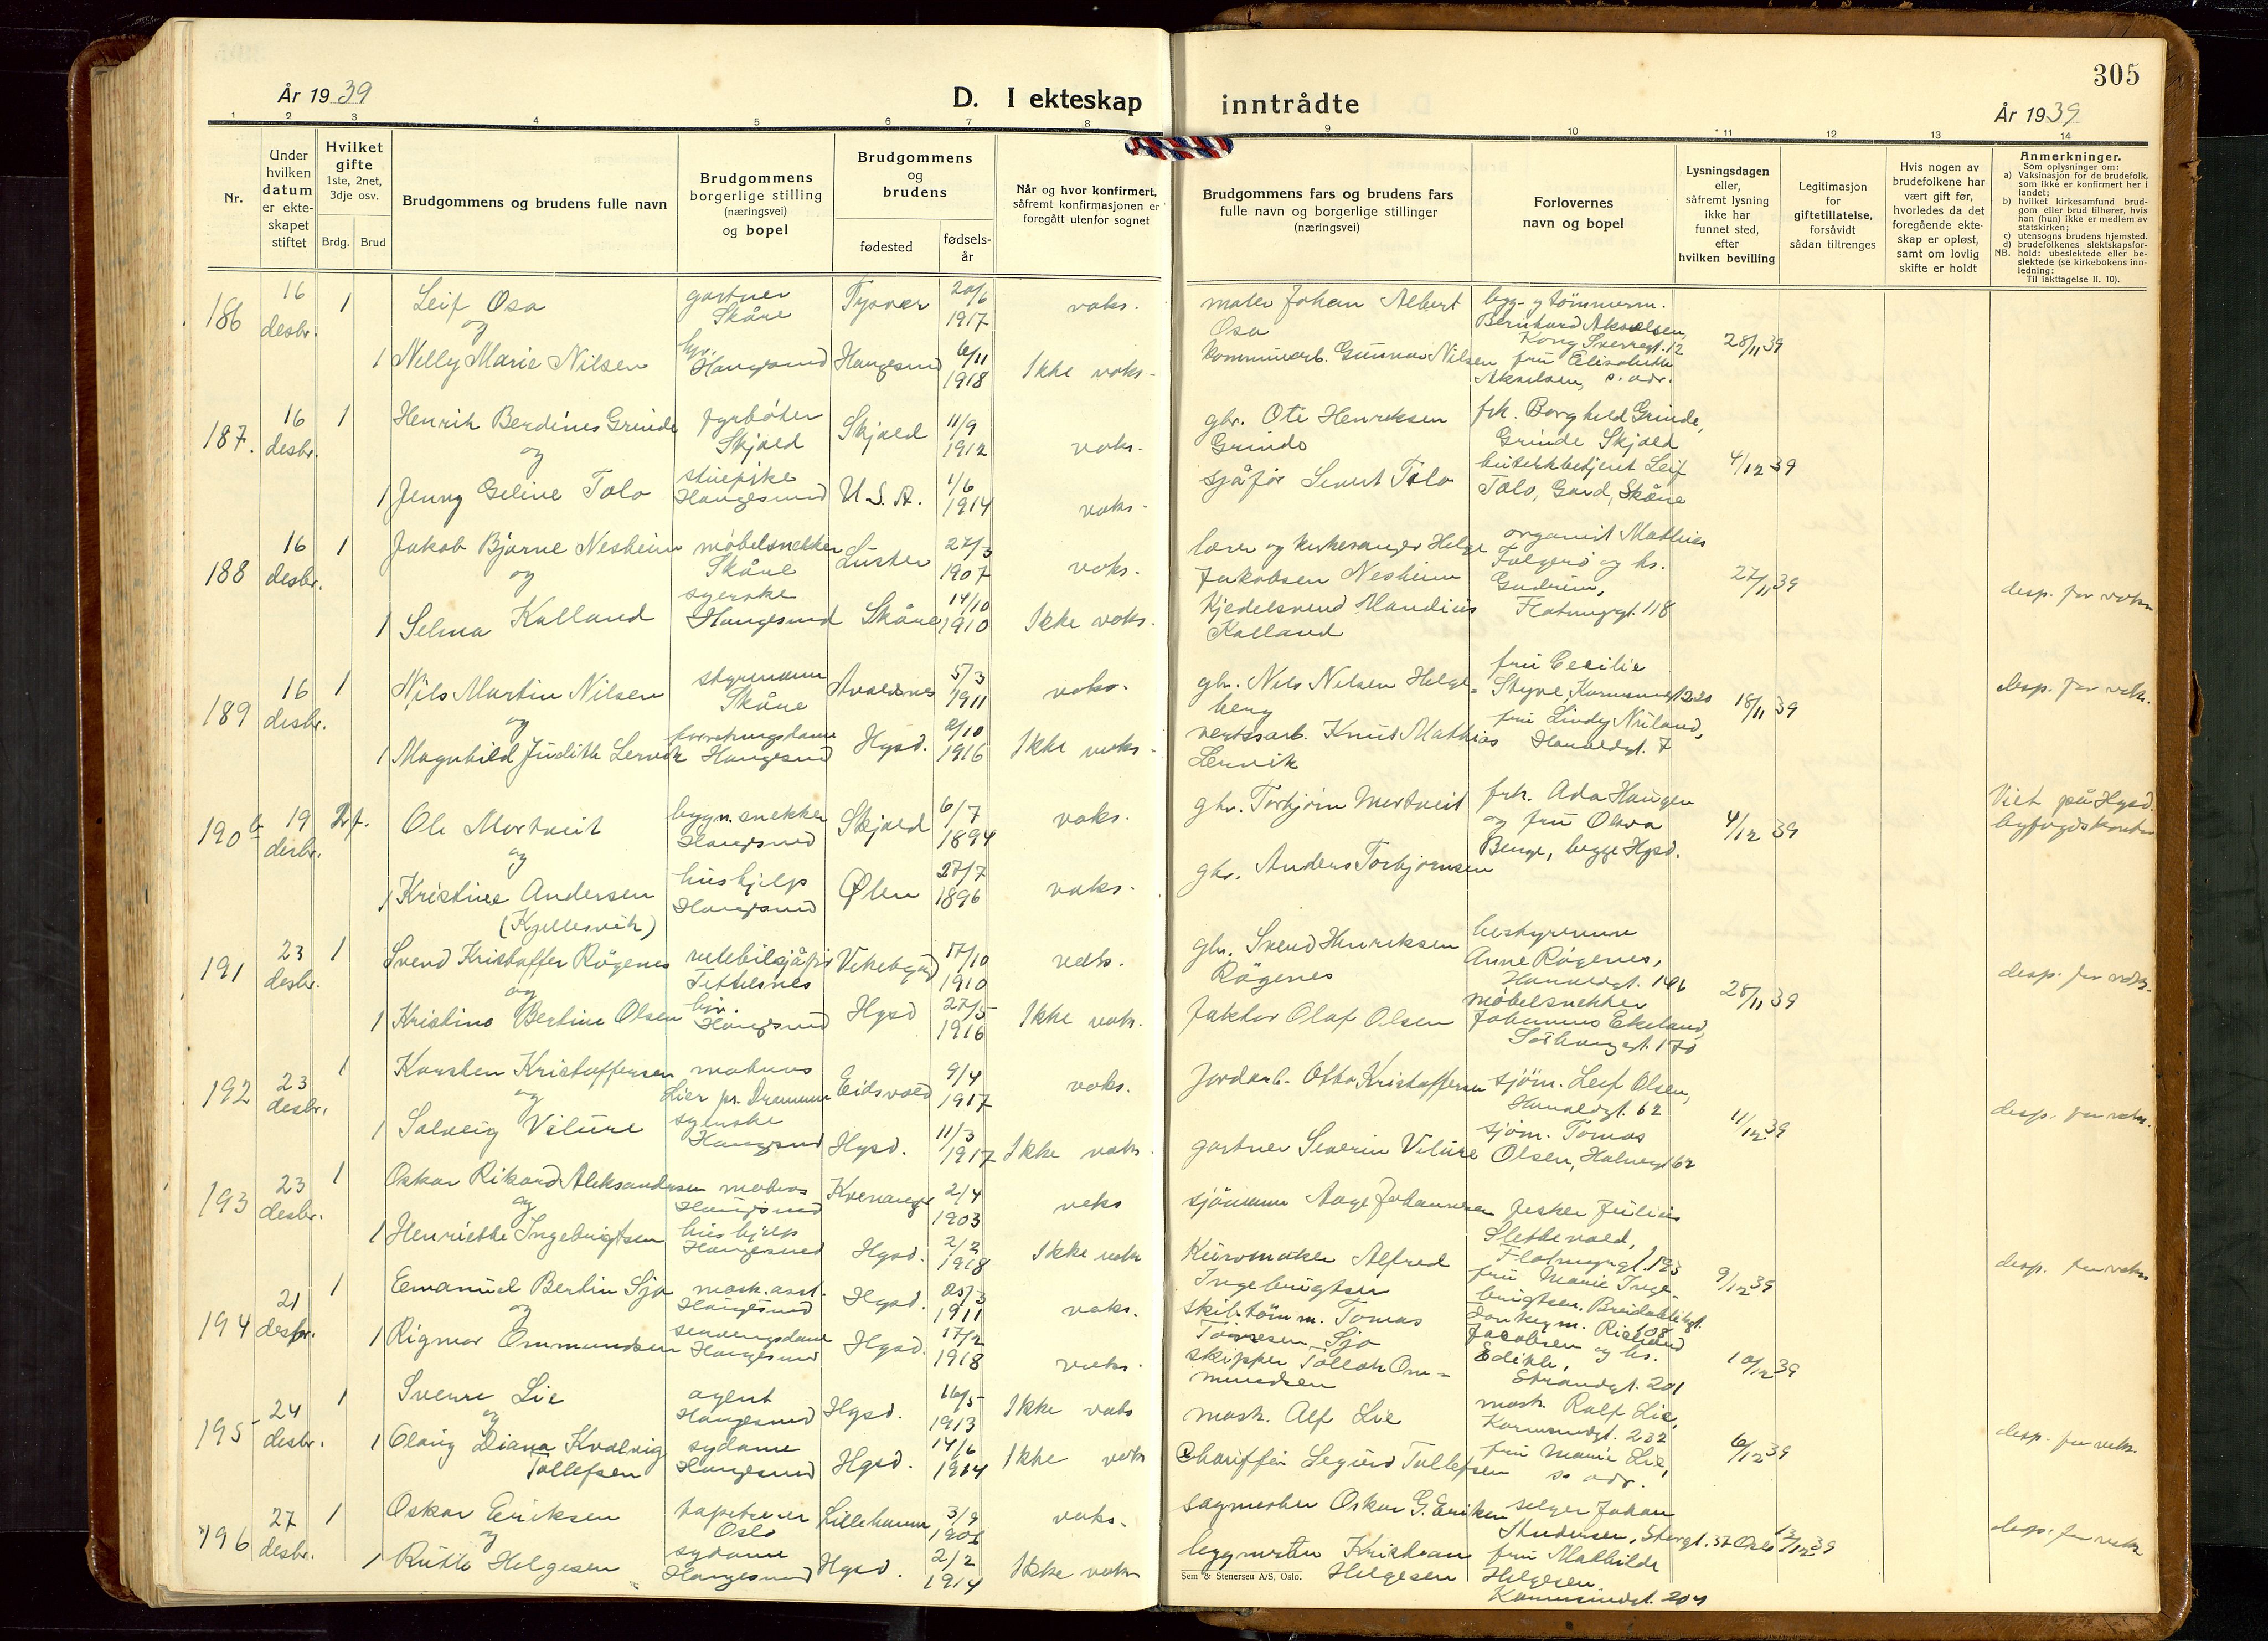 305
År 1939
D. I ekteskap
inntrådte
År 1939
1 2 3 4 5 6 7 8 9 10 11 12 13 14
Nr.
Under hvilken datum er ekteskapet stiftet
Hvilket gifte 1ste, 2net, 3dje osv.
Brdg. Brud
Brudgommens og brudens fulle navn
Brudgommens borgerlige stilling (næringsvei) og bopel
Brudgommens og brudens
fødested
fødselsår
Når og hvor konfirmert, såfremt konfirmasjonen er foregått utenfor sognet
Brudgommens fars og brudens fars fulle navn og borgerlige stillinger (næringsvei)
Forlovernes navn og bopel
Lysningsdagen eller, såfremt lysning ikke har funnet sted, efter hvilken bevilling
Legitimasjon for giftetillatelse, forsåvidt sådan tiltrenges
Hvis nogen av brudefolkene har vært gift før, hvorledes da det foregående ekteskap er opløst, samt om lovlig skifte er holdt
Anmerkninger.
Som oplysninger om:
a) Vaksinasjon for de brudefolk, som ikke er konfirmert her i landet;
b) hvilket kirkesamfund brudgom eller brud tilhører, hvis han (hun) ikke er medlem av statskirken;
c) utensogns brudens hjemsted.
d) brudefolkenes slektskapsforhold: ubeslektede eller beslektede (se kirkebokens innledning:
NB. Til iakttagelse II. 10).
186 16 desbr. 1 Leif Osa gartner Skåre Tysvær 20/6 1917 vaks. maler Johan Albert Osa
og
1 Nelly Marie Nilsen Haugesund Haugesund 6/11 1918 Ikke vaks. Kommunearb. Gunnar Nilsen
bygg- og tømmerm. Bernhard Akselsen, Kong Sverresgt. 12 fru Elisabeth Akselsen, s. adr. 28/11 39
187. 16 desbr. 1 Henrik Berdines Grinde fyrbøter Skjold Skjold 11/9 1912 vaks. gbr. Ole Henriksen Grinde
og
1 Jenny Geline Tolo stuepike Haugesund U.S.A. 1/6 1914 vaks. sjåfør Sivert Tolo
frk. Borghild Grinde, Grinde Skjold Leif Tolo, Gard, Skåre 4/12 39
188 16 desbr. 1 Jakob Bjarne Nesheim møbelsnekker Skåre Luster 27/3 1907 vaks. lærer og kirkesanger Helge Jakobsen Nesheim
og
1 Selma Kalland syerske Haugesund Skåre 14/10 1910 Ikke vaks. Kjedelsmed Mandius Kalland
organist Mathias Folgerø og hs. Gudrun, Flotmyrgt. 118 27/11 39 desp. for vaks.
189 16 desbr. 1 Nils Martin Nilsen styrmann Skåre Avaldsnes 5/3 1911 vaks. gbr. Nils Nilsen Helgeberg
og
1 Magnhild Judith Lervik forretningsdame Haugesund Hgsd. 2/10 1916 Ikke vaks. verkstarb. Knut Mathias Lervik
fru Cecilie Styve, fru Lindy Haraldsgt. 7 18/11 39 desp. for vaks.
190 b 19 desbr. 2 f. Ole Mortveit bygn.snekker Haugesund Skjold 6/7 1894 vaks. gbr. Torbjørn Mortveit
og
1 Kristine Andersen (Kyllesvik) hushjelp Haugesund Ølen 27/7 1896 vaks. gbr. Anders Torbjørnsen
frk. Ada Haugen og fru Olava Benge, begge Hgsd. 4/12 39 Viet på Hgsd. byfogdkontor
191 23 desbr. 1 Svend Kristoffer Røgenes rutebilsjåfør Tittelsnes Vikebygd 17/10 1910 vaks. gbr. Svend Henriksen Røgenes
og
1 Kristine Bertine Olsen Haugesund Hgsd 27/5 1916 Ikke vaks. faktor Olaf Olsen
bestyrerinne Anne Røgenes, Haraldsgt. møbelsnekker Johannes Ekeland, Sørhauggt. 170 28/11 39 desp. for vaks.
192 23 desbr. 1 Karsten Kristoffersen matros Lier pr. Drammen Eidsvold 9/4 1917 vaks. Jordarb. Otto Kristoffersen
og
1 Solveig Vilure syerske Haugesund Hgsd. 11/3 1917 Ikke vaks. gartner Severin Vilure
sjøm. Leif Olsen, Haraldsgt. 62 sjøm. Tomas Olsen, 11/12 39 desp. for vaks.
193 23 desbr. 1 Oskar Rikard Aleksandersen matros Haugesund Kvenangen 2/4 1903 vaks sjømann Aage Johannesen
og
1 Henriette Ingebrigtsen hushjelp Haugesund Hgsd. 2/2 1918 Ikke vaks Kurvmaker Alfred Ingebrigtsen
fisker Julius Slettevold, Flotmyrgt. 193 fru Marie Ingebrigtsen. Breidablikgt. 108 9/12 39 desp. for vaks
194 21 desbr. 1 Emanuel Bertin Sjo mask.asst. Haugesund Hgsd. 25/3 1911 vaks. skib.tømm. Tomas Tomesen Sjo
og
1 Rigmor Ommundsen serveringsdame Haugesund Hgsd. 17/2 1918 vaks. skipper Tollak Ommundsen
Jacobsen og hs. Edith, Strandgt. 201 10/12 39
195 24 desbr. 1 Sverre Lie agent Haugesund Hgsd. 16/5 1913 Ikke vaks mask. Alf Lie
og
1 Olaug Diana Kvalevig Tollefsen sydame Haugesund Hgsd. 14/6 1914 Ikke vaks Sigurd Tollefsen
mask. Rolf Lie, Karmsundgt. 232 fru Marie Lie, s. adr. 6/12 39 desp. for vaks.
196 27 desbr. 1 Oskar Eriksen tapetserer Oslo Lillehammer 3/9 vaks. sagmester Oskar G. Eriksen
og
1 Ruth Helgesen sydame Haugesund Hgsd. 2/2 1914 Ikke vaks byggmester Kristian Helgesen
selger Johan Oslo fru Mathilde Helgesen Karmsundgt. 204 12/12 39 desp. for vaks
Sem & Stenersen A/S, Oslo.